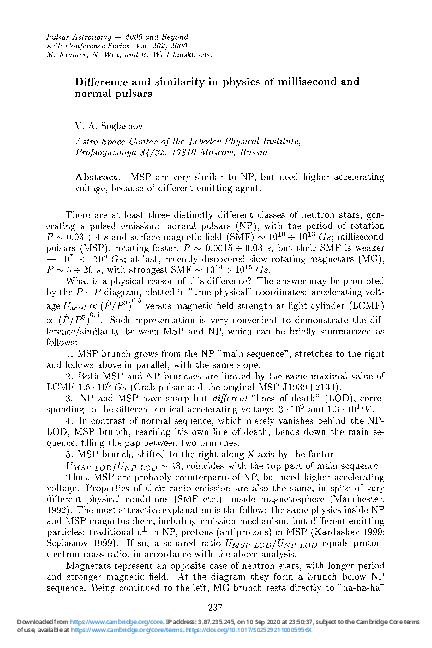 Pulsar Astronomy — 2000 and Beyond
ASP Conference Series, Vol. 202, 2000
M. Kramer, N. Wex, and R. Wielebinski, eds.
Difference and similarity in physics of millisecond and
normal pulsars
V. A.
Astro Space Center of the Lebedev Physical Institute,
Profsoyuznaja 84/32, Moscow, Russia
Abstract. MSP are very similar to NP, but need higher accelerating
voltage, because of different emitting agent.
There are at least three distinctly different classes of neutron stars, gen-
erating a pulsed emission: normal pulsars (NP), with the period of rotation
and surface magnetic field (SMF) millisecond
pulsars (MSP), rotating faster, but their SMF is weaker
at last, recently discovered slow rotating magnetars (MG),
with strongest SMF
What is a physical reason of this difference? The answer may be prompted
by the diagram, plotted in "more physical" coordinates: accelerating volt-
age versus magnetic field strength at light cylinder (LCMF)
Such representation is very convenient to demonstrate the dif-
ference/similarity between MSP and NP, which can be briefly summarize as
follows:
1. MSP branch grows from the NP "main sequence", stretches to the right
and follows above in parallel, with the same slope.
2. Both MSP and NP branches are limited by the same maximal value of
LCMF (Crab pulsar and the original MSP
3. NP and MSP have sharp but different "lines of death" (LOD), corre-
sponding to the different critical accelerating voltage:
4. In contrast of normal sequence, which merely vanishes behind the NP-
LOD, MSP branch, reaching its own line of death, bends down the main se-
quence, filling the gap between two branches.
5. MSP branch, shifted to the right along X axis by the factor
coincides with the top part of main sequence.
Thus MSP are probably counterparts of NP, but need higher accelerating
voltage. Properties of their radio emission are also the same, in spite of very
different physical conditions (SMF etc.) inside magnetosphere (Manchester
1992). The most attractive explanation is the follow: the same physics inside NP
and MSP magnetosphere, including emission mechanism, but different emitting
particles: traditional in NP, protons (antiprotons) in MSP (Kardashev
1999). If so, a squared ratio equals proton-
electron mass ratio, in accordance with the above analysis.
Magnetars represent an opposite case of neutron stars, with longer period
and stronger magnetic field. At the diagram they form a branch below NP
sequence. Being continued to the left, MG branch rests directly to
237
Downloaded from https://www.cambridge.org/core. IP address: 3.87.235.245, on 10 Sep 2020 at 23:50:37, subject to the Cambridge Core terms
of use, available at https://www.cambridge.org/core/terms.